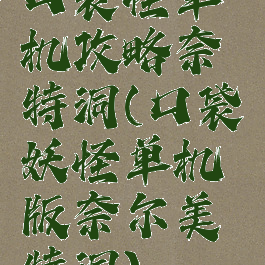 口袋怪单
机攻略奈
特洞(口袋
妖怪单机
版奈尔美
特洞)